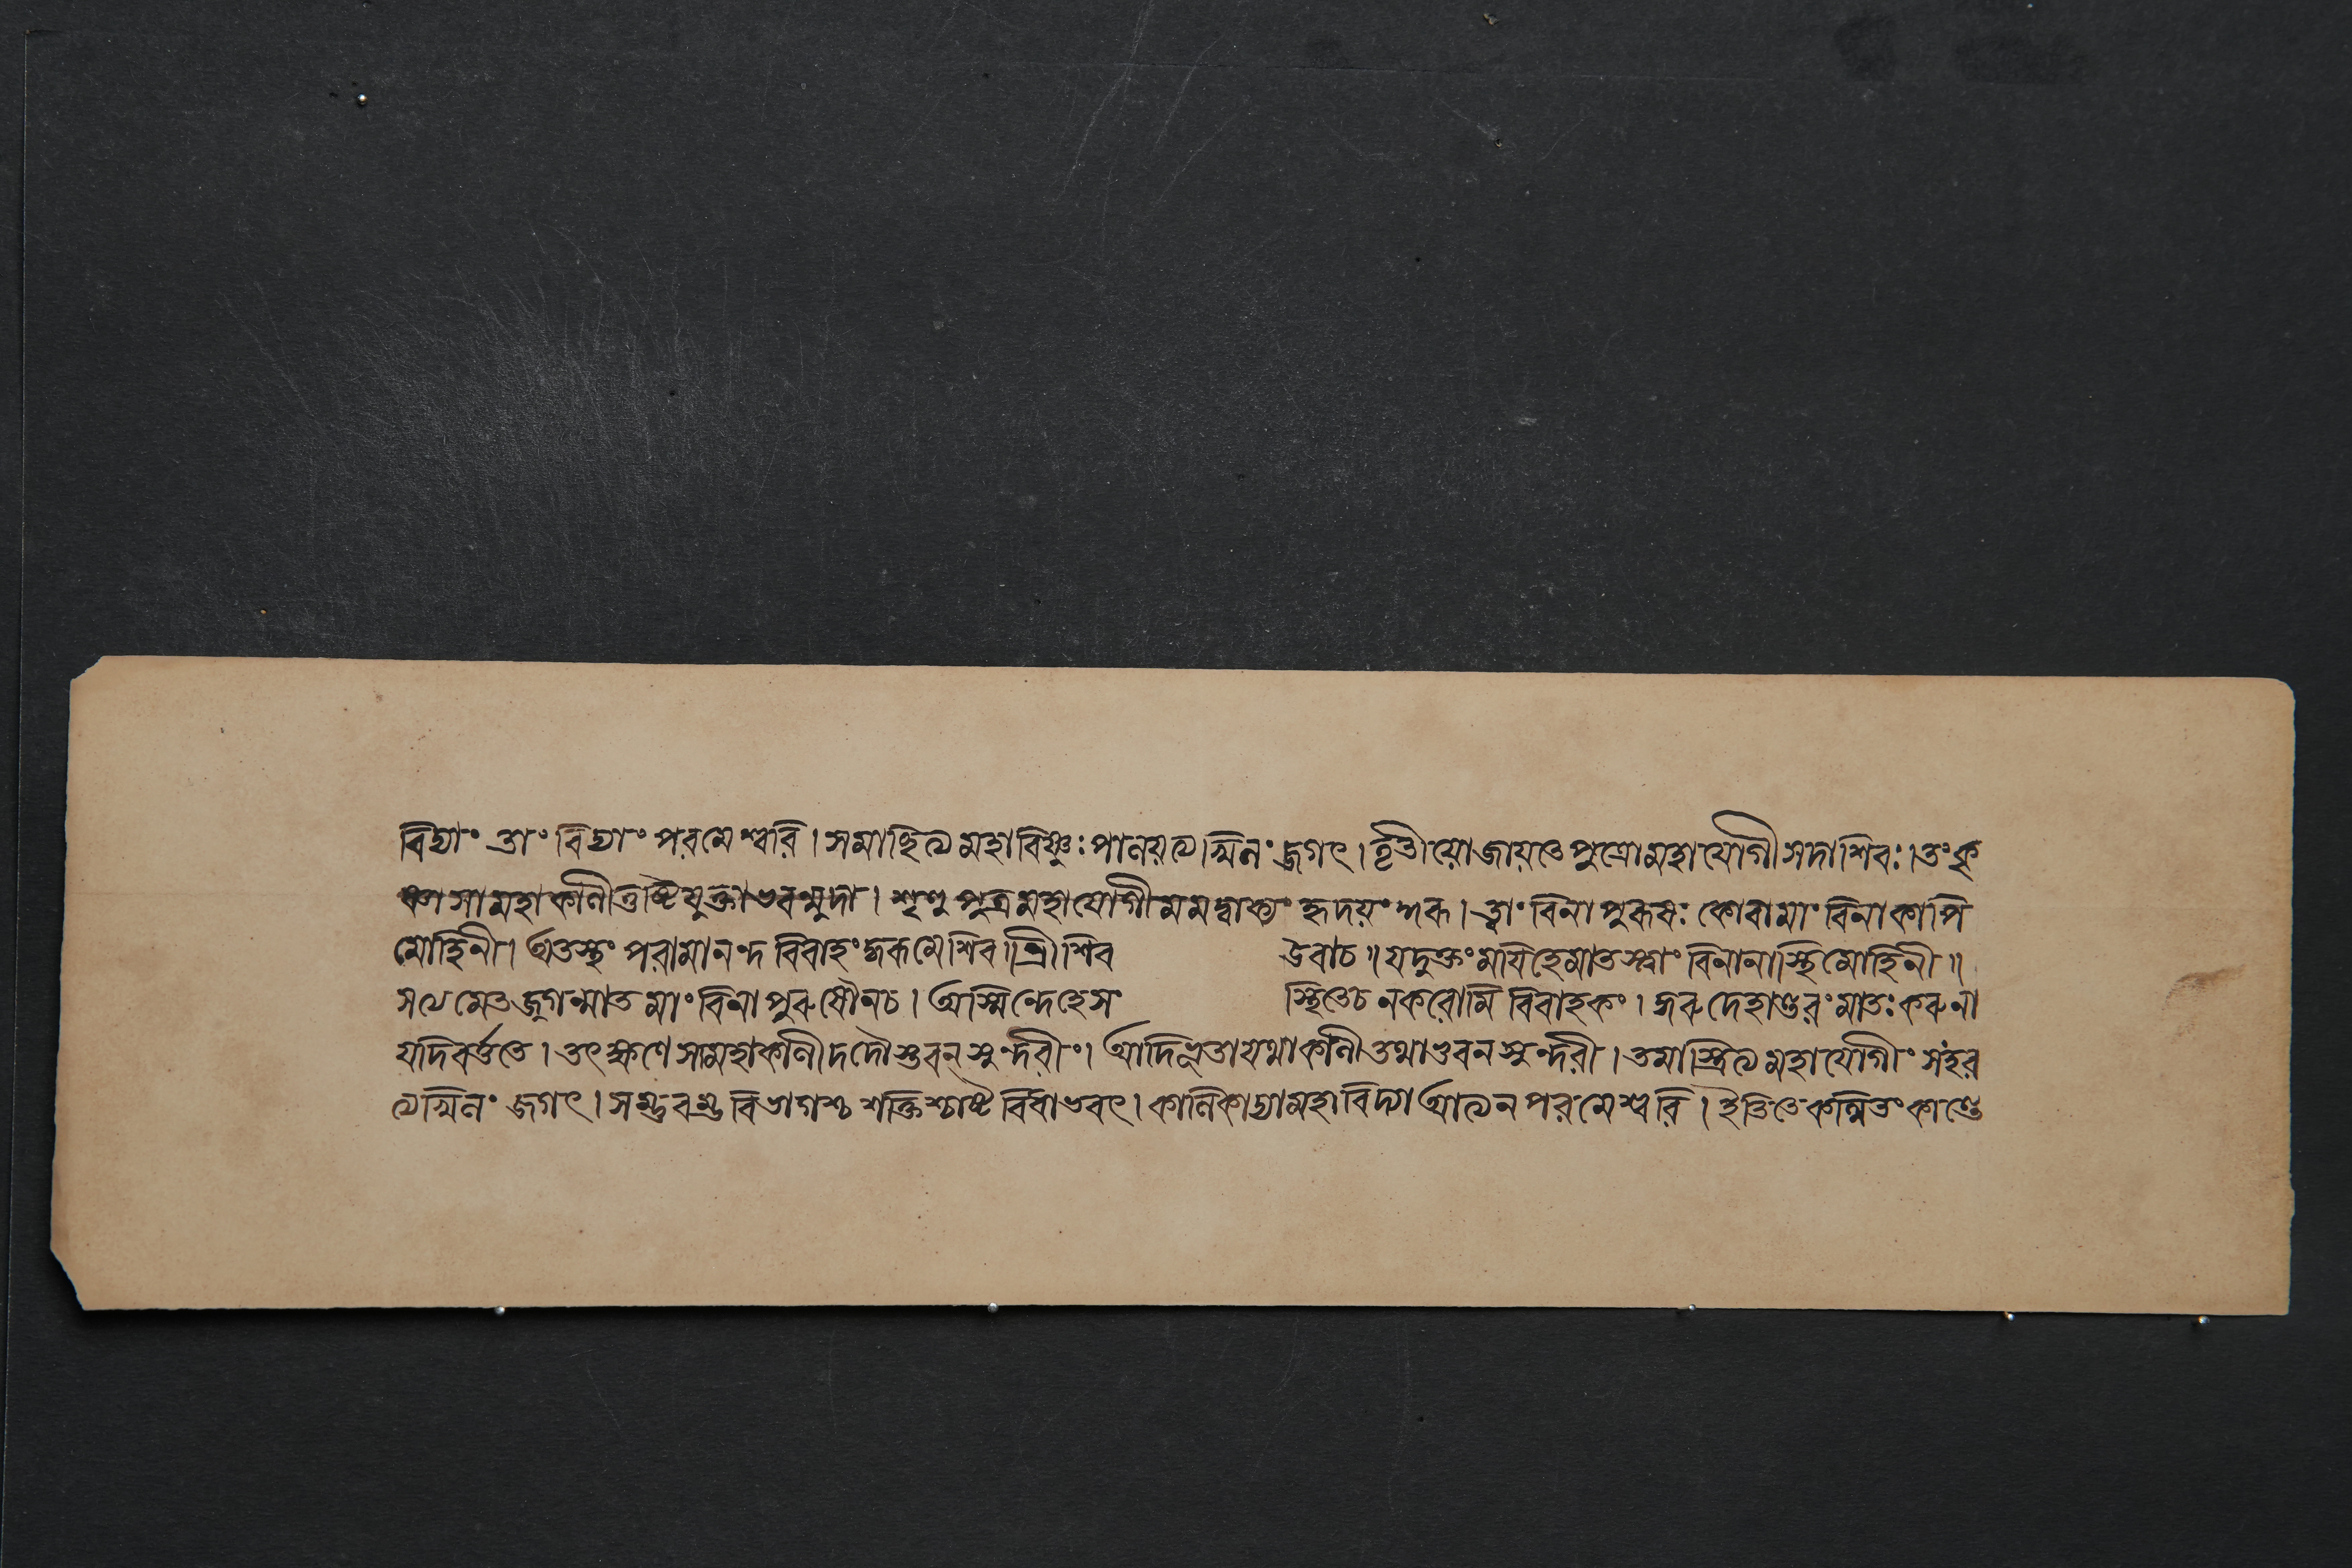 বিদ্যাং তাং বিদ্যাং পরমেশ্বরি। সমাশ্রিত্য মহাবিষ্ণুঃ পালয়ত্যখিলং জগৎ। তৃতীয়ো জায়তে পুত্রো মহাযোগী সদাশিবঃ। তং দৃ
ষ্ট্বা সা মহাকালী তুষ্টিযুক্তাভবন্মুদা। শৃণু পুত্র মহাযোগী মমদ্বাক্যং হৃদয়ং কুরু। ত্বাং বিনা পুরুষঃ কোবা মাং বিনা কাপি
মোহিনী। অতস্ত্বং পরামানন্দ বিবাহং কুরু মে শিব। শ্রীশিব উবাচ॥ যদুক্তং ময়ি হে মাতস্ত্বাং বিনা নাস্তি মোহিনী॥
সত্যমেতজ্জগন্মাত মাং বিনা পুরুষৌ ন চ। অস্মিন্দেহে সং স্থিতে চ ন করোমি বিবাহকং। কুরু দেহান্তরং মাতঃ করুনা
যদি বর্ত্ততে। তৎক্ষণে সা মহাকালী দদৌ ভুবনসুন্দরীং। আদিভূতা যথা কালী তথা ভুবনসুন্দরী। তমাশ্রিত্য মহাযোগীং সংহর
ত্যখিলং জগৎ। সম্ভবশ্চ বিভাগশ্চ শক্তিশ্চাষ্ট বিধাভবৎ। কালিকাদ্যা মহাবিদ্যা পরমেশ্বরি। ইতি তে কথিতং কাণ্ডে